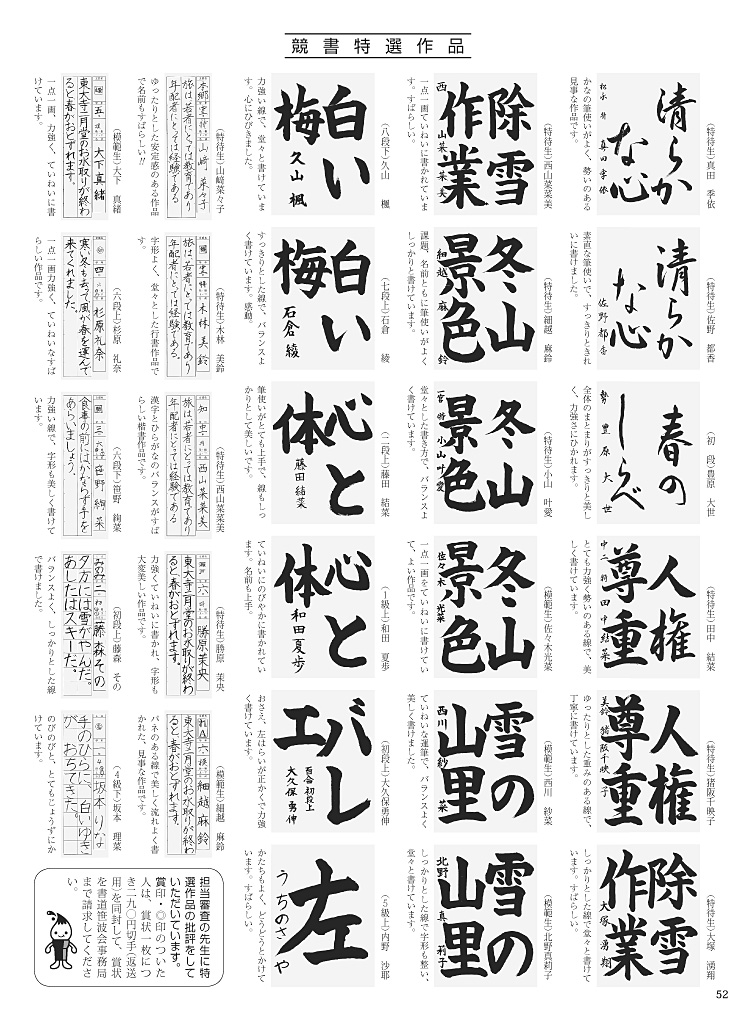 競書特選作品
清らか
な心
（特待生）真田　季依
かなの筆使いがよく、勢いのある
見事な作品です。
清らか
な心
佐野都香
（特待生）佐野　都香
素直な筆使いで、すっきりときれ
いに書けました。
春の
しらべ
豊原大世
（初　段）豊原　大世
全体のまとまりがすっきりと美し
く、力強さにひかれます。
人権
尊重
中二 特 田中結菜
（特待生）田中　結菜
とても力強く勢いのある線で、美
しく書けています。
人権
尊重
美鈴 猪阪千映子
（特待生）猪阪千映子
ゆったりとした重みのある線で、
丁寧に書けています。
除雪
作業
大塚湧翔
（特待生）大塚　湧翔
しっかりとした線で堂々と書けて
います。すばらしい。
除雪
作業
西山菜菜美
（特待生）西山菜菜美
一点一画ていねいに書かれていま
す。すばらしい。
冬山
景色
細越麻鈴
（特待生）細越　麻鈴
課題、名前ともに筆使いがよく
しっかりと書けています。
冬山
景色
小山叶愛
（特待生）小山　叶愛
堂々とした書き方で、バランスよ
く書けています。
冬山
景色
佐々木光菜
（模範生）佐々木光菜
一点一画をていねいに書けてい
て、よい作品です。
雪の
山里
西川紗菜
（模範生）西川　紗菜
ていねいな運筆で、バランスよく
美しく書けました。
雪の
山里
北野真莉子
（模範生）北野真莉子
しっかりとした線で字形も整い、
堂々と書けています。
白い
梅
久山楓
（八段下）久山　楓
力強い線で、堂々と書けていま
す。心にひびきました。
白い
梅
石倉綾
（七段上）石倉　綾
すっきりとした線で、バランスよ
く書けています。感動。
心と
体
藤田結菜
（二段上）藤田　結菜
筆使いがとても上手で、線もしっ
かりとして美しいです。
心と
体
和田夏歩
（1級上）和田　夏歩
ていねいにのびやかに書かれてい
ます。名前も上手。
バレ
エ
百合 初段上
大久保勇伸
（初段上）大久保勇伸
おさえ、左はらいが正かくで力強
く書けています。
左
うちのさや
（5級上）内野　沙耶
かたちもよく、どうどうとかけて
います。すばらしい。
本郷 山﨑菜々子
旅は若者にとっては教育であり
年配者にとっては経験である
（特待生）山﨑菜々子
ゆったりとした安定感のある作品
で名前もすばらしい!!
木林美鈴
旅は、若者にとっては教育であり
年配者にとっては経験である。
（特待生）木林　美鈴
字形よく、堂々とした行書作品で
す。
知 西山菜菜美
旅は若者にとっては教育であり
年配者にとっては経験である
（特待生）西山菜菜美
漢字とひらがなのバランスがすば
らしい楷書作品です。
六 勝原茉央
東大寺二月堂のお水取りが終わ
ると春がおとずれます。
（特待生）勝原　茉央
力強くていねいに書かれ、字形も
大変美しい作品です。
れA 六 模 細越麻鈴
東大寺二月堂のお水取りが終わ
ると春がおとずれます。
（模範生）細越　麻鈴
バネのある線で美しく流れよく書
かれた、見事な作品です。
五 大下真緒
東大寺二月堂のお水取りが終わ
ると春がおとずれます。
（模範生）大下　真緒
一点一画、力強く、ていねいに書
けています。
四 杉原礼奈
寒い冬も去って風が春を運んで
来てくれました。
（六段上）杉原　礼奈
一点一画力強く、ていねいなすば
らしい作品です。
三 笹野絢菜
食事の前にはかならず手を
あらいましょう。
（六段下）笹野　絢菜
力強い線で、字形も美しく書けて
います。
二 藤森その
夕方には雪がやんだ。
あしたはスキーだ。
（初段上）藤森　その
バランスよく、しっかりとした線
で書けました。
一 坂本りな
手のひらに、白いゆき
が、おちてきた。
（4級下）坂本　理菜
のびのびと、とてもじょうずにか
けています。
担当審査の先生に特
選作品の批評をして
いただいています。
賞印・◎印のついた
人は、賞状一枚につ
き二九〇円切手（返送
用）を同封して、賞状
を書道笹波会事務局
まで請求してくださ
い。
52